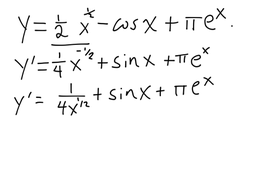 y = 1/2 x^x - cos x + πe^x.
y' = 1/4 x^-1/2 + sin x + πe^x
y' = 1/4x^1/2 + sin x + πe^x